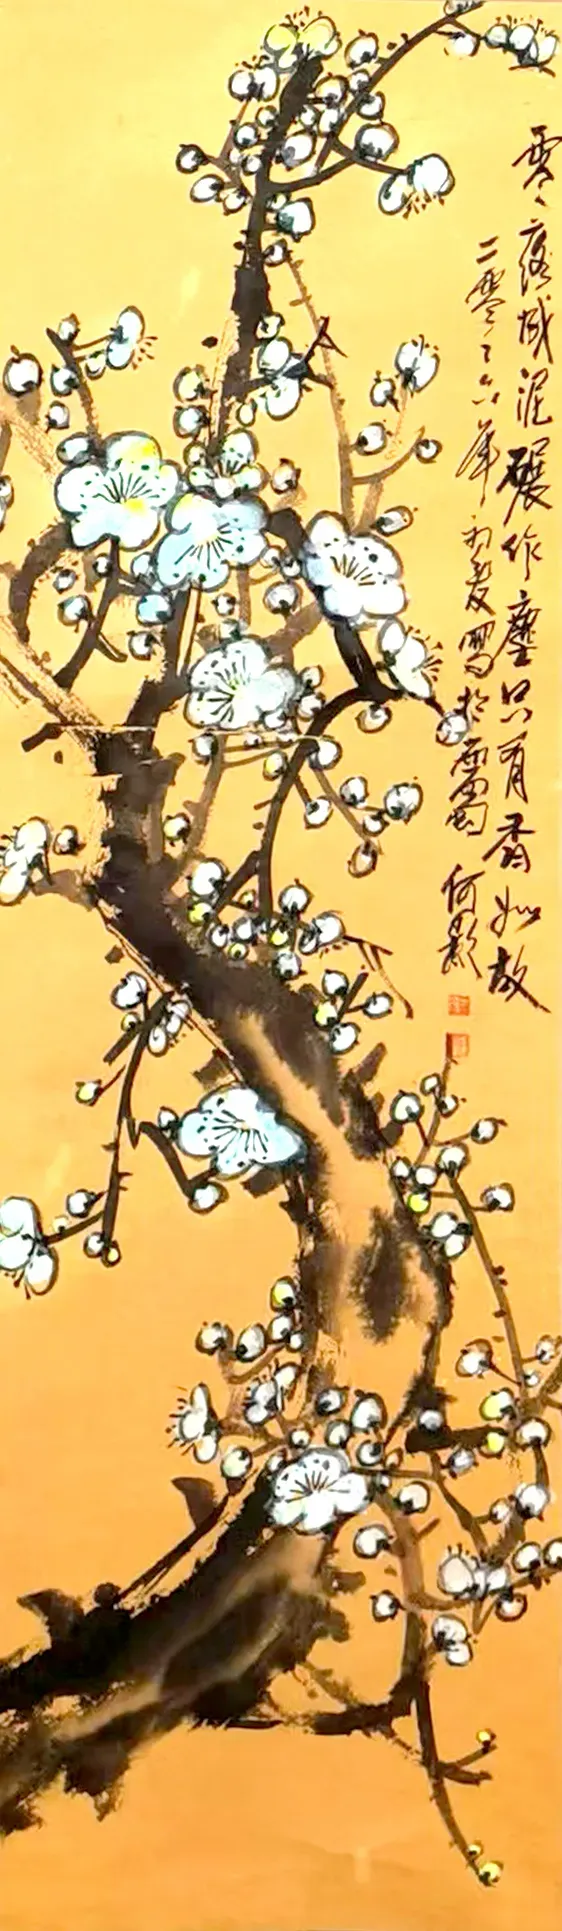 零落成泥碾作塵只有香如故
二零〻六年初夏寫於西蜀 何